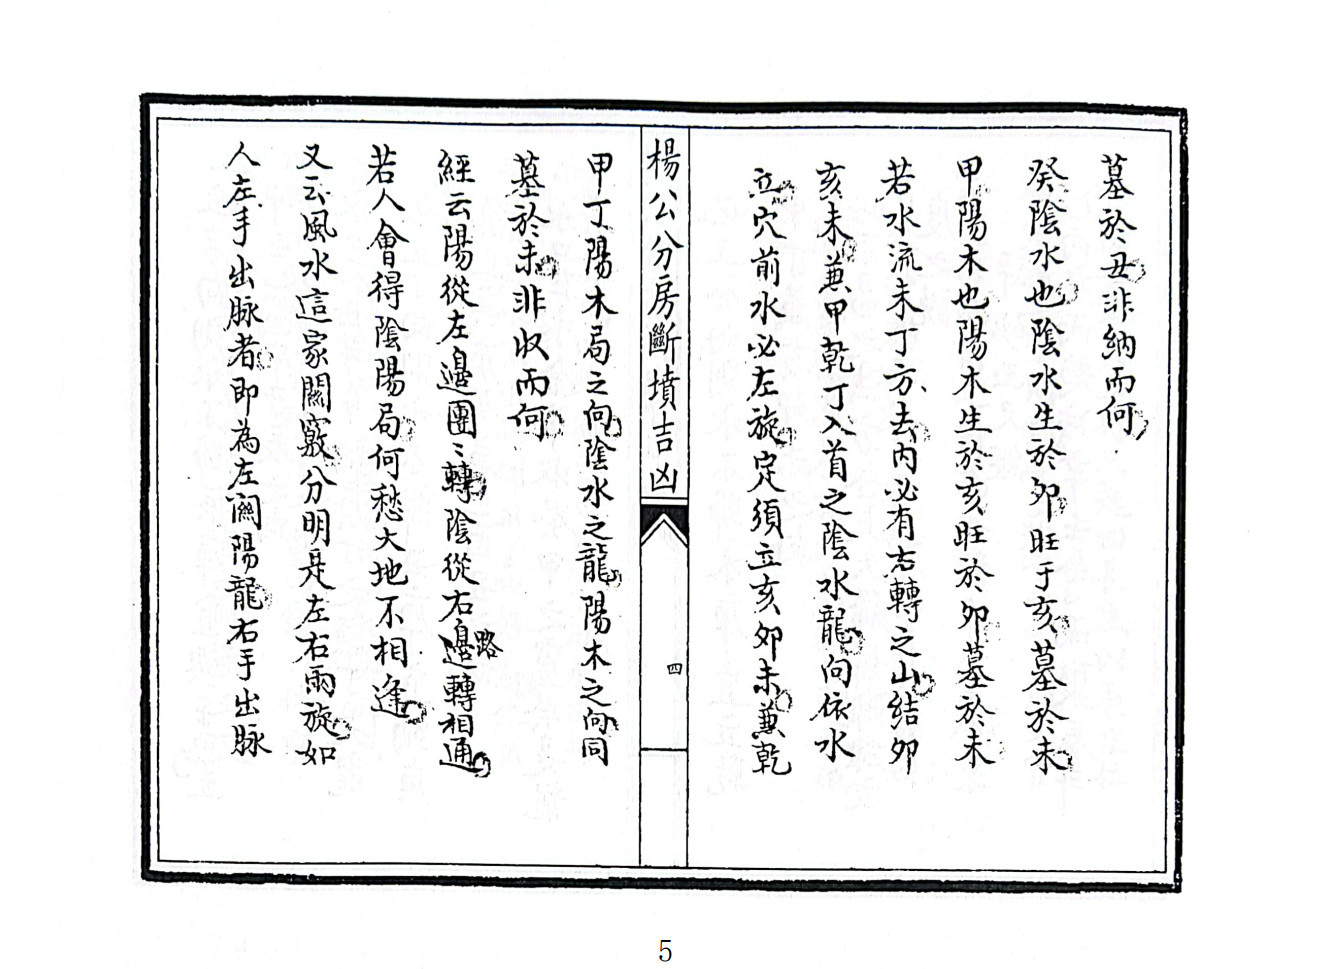 墓於丑非納而何
癸陰水也陰水生於卯旺于亥墓於未
甲陽木也陽木生於亥旺於卯墓於未
若水流未丁方去內必有右轉之山結卯
亥未兼甲乾丁入首之陰水龍向依水
立穴前水必左旋定須立亥卯未兼乾
楊公分房斷墳吉凶
四
甲丁陽木局之向陰水之龍陽木之向同
墓於未非收而何
經云陽從左邊團〻轉陰從右邊路轉相通
若人會得陰陽局何愁大地不相逢
又云風水這家關竅分明是左右兩旋如
人左手出脉者即為左關陽龍右手出脉
5